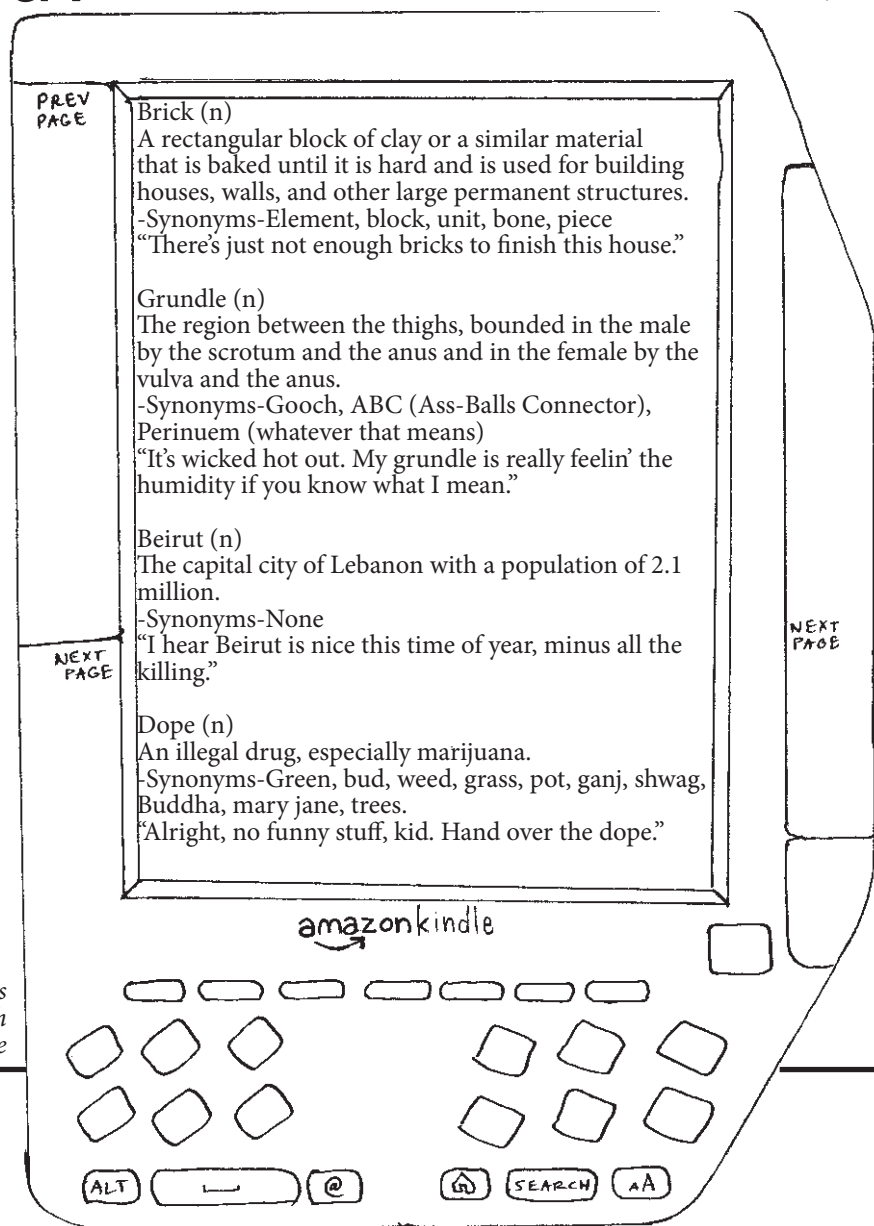 PREV
PAGE
Brick (n)
A rectangular block of clay or a similar material
that is baked until it is hard and is used for building
houses, walls, and other large permanent structures.
-Synonyms-Element, block, unit, bone, piece
“There’s just not enough bricks to finish this house.”
Grundle (n)
The region between the thighs, bounded in the male
by the scrotum and the anus and in the female by the
vulva and the anus.
-Synonyms-Gooch, ABC (Ass-Balls Connector),
Perinuem (whatever that means)
“It’s wicked hot out. My grundle is really feelin’ the
humidity if you know what I mean.”
Beirut (n)
The capital city of Lebanon with a population of 2.1
million.
-Synonyms-None
“I hear Beirut is nice this time of year, minus all the
killing.”
NEXT
PAGE
NEXT
PAGE
Dope (n)
An illegal drug, especially marijuana.
-Synonyms-Green, bud, weed, grass, pot, ganj, shwag,
Buddha, mary jane, trees.
“Alright, no funny stuff, kid. Hand over the dope.”
amazonkindle
ALT
@
SEARCH
AA